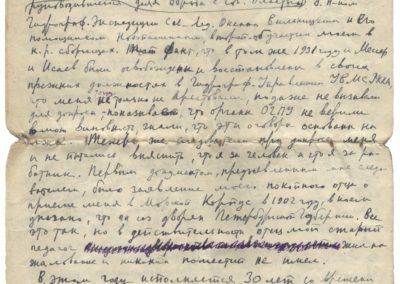 Гидрограф. Экспедиции Сев. Лед. Океана Вилькицким и его
помощником Новопашенным в
к. р. сборищах. Этот факт, что в том же 1931 году и Месер
и Исаев были освобождены и восстановлены в своих
прежних должностях в Гидрограф. Управлении УВМС РККА,
что меня не только не арестовали, но даже не вызвали
для допроса - показывает, что органы ОГПУ не верили
в мою виновность, знали, что эта оговора основана на
лжи. Теперь же следователи при допросе меня
и не пытались выяснить, что я за человек и что я за ра-
ботник. Первым документом, предъявленным мне следо-
вателем, было заявление моего покойного отца о
приеме меня в Морской Корпус в 1902 году, в коем
указано, что он из дворян Петербургской Губернии. Все
это так, но в действительности отец мой старый
педагог жил на
жалованье и никаких поместий не имел.
В этом году исполняется 30 лет со времени